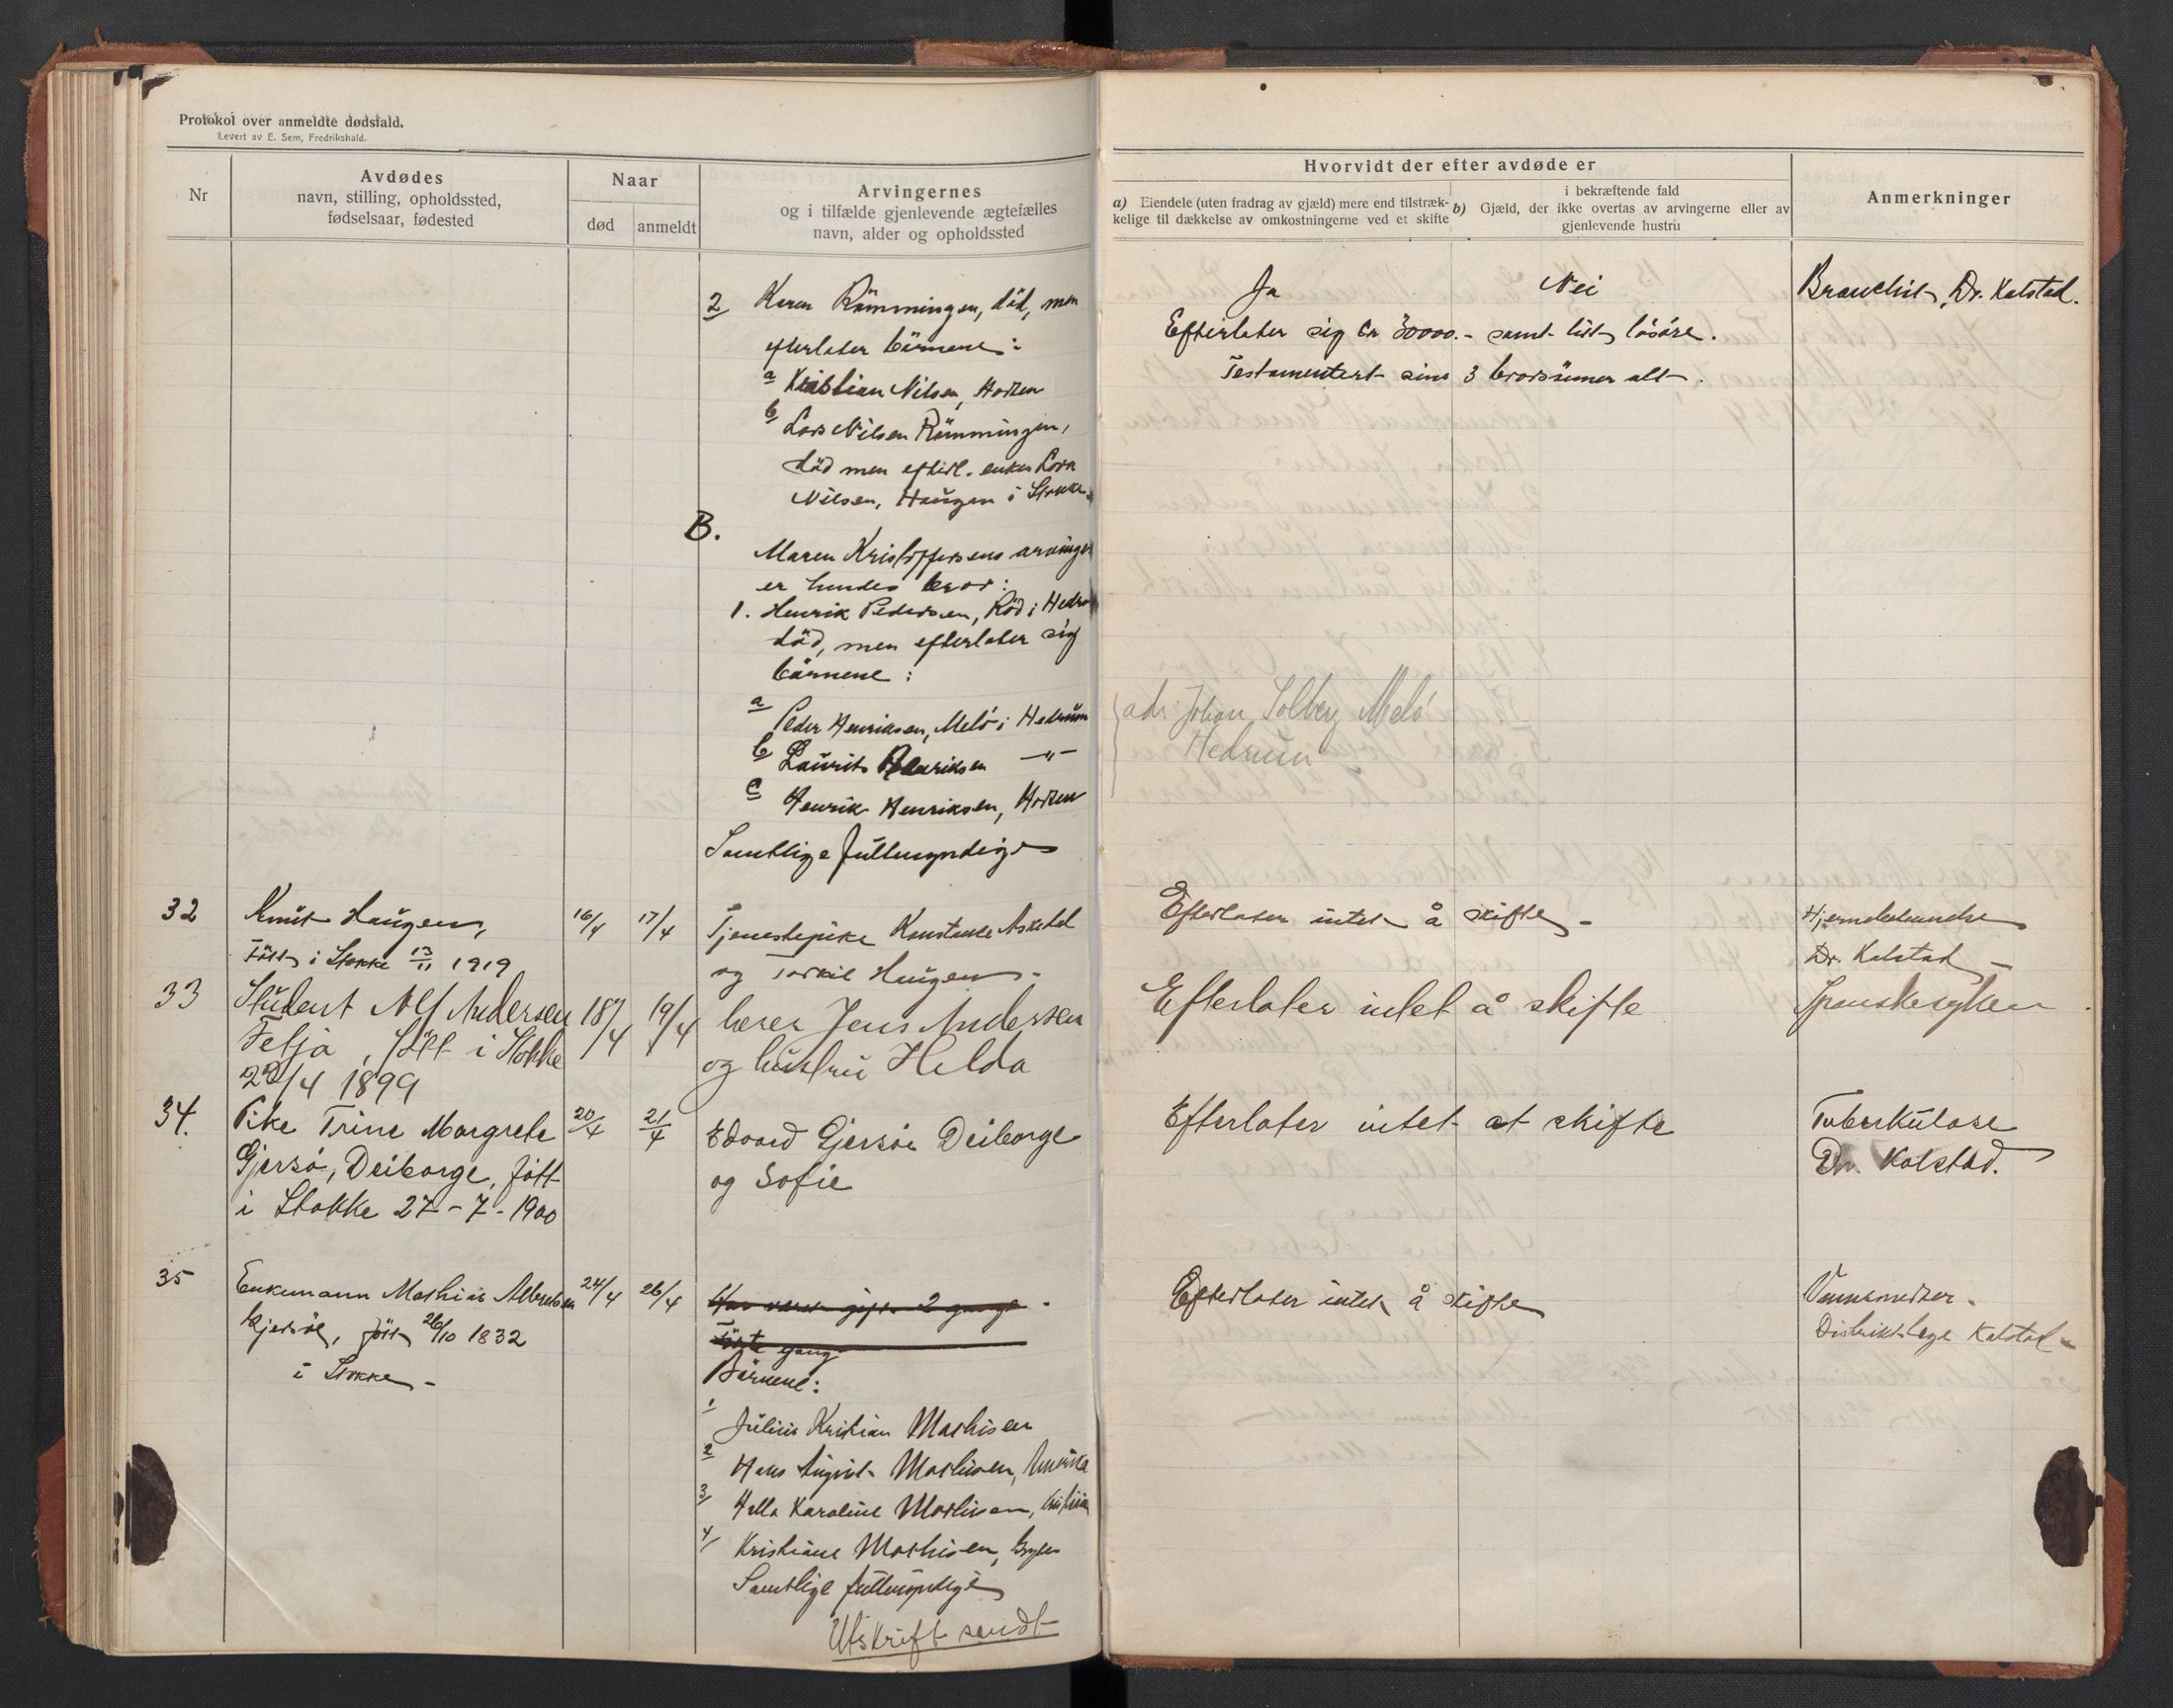 Protokol over anmeldte dødsfald.
Levert av E. Sem, Fredrikshald.
Nr
Avdødes
navn, stilling, opholdssted,
fødselsaar, fødested
Naar
død
anmeldt
Arvingernes
og i tilfælde gjenlevende ægtefælles
navn, alder og opholdssted
2 Karen Römmingen, död, men
efterlater börnene:
a Kristian Nilsen, Horten
b Lars Nilsen Römmingen,
död men efterl. enken Lova
Nilsen, Haugen i Stokke
B.
Maren Kristoffersens arvinger
er hendes bror:
1. Henrik Pedersen, Röd i Hedrum
död, men efterlater sig
börnene:
a Peder Henriksen, Melö i Hedrum
b Laurits Henriksen —"—
c Henrik Henriksen, Horten
Samtlige fullmyndige
32 Knut Haugen,
Född i Stokke 13/11 1919
16/4 17/4
Tjenestepike Konstanse Askedal
og Torkil Haugen.
33 Student Alf Andersen
Felja, fött i Stokke
22/4 1899
18/4 19/4
lærer Jens Andersen
og hustru Helda
34. Pike Trine Margrete
Gjersö, Deiborge, fött
i Stokke 27-7-1900
20/4 21/4
Edvard Gjersöe Deiborge
og Sofie
35 Enkemann Mathias Albretsen
Gjersöe, fött 26/10 1832
i Stokke
24/4 26/4
Har været gift 2 gange.
Förte gang
Börnene:
1 Julius Kristian Mathisen
2 Hans August Mathisen, Amerika
3/ Hella Karoline Mathisen, Kristiania
4/ Kristiane Mathisen,
Samtlige fullmyndige
Utskrift sendt
Hvorvidt der efter avdøde er
a) Eiendele (uten fradrag av gjæld) mere end tilstræk-
kelige til dækkelse av omkostningerne ved et skifte
i bekræftende fald
b) Gjæld, der ikke overtas av arvingerne eller av
gjenlevende hustru
Anmerkninger
Ja Nei Bronchit, Dr. Kolstad.
Efterlater sig kr 30000.- samt litt lösöre.
Testamentert sine 3 brorsönner alt.
adr. Johan Solberg Melö
Hedrum
Efterlater intet å skifte Hjernebetændelse
Dr. Kolstad
Efterlater intet å skifte Spanskesyken
Efterlater intet at skifte Tuberkulose
Dr. Kolstad.
Efterlater intet å skifte
Distriktslege Kolstad